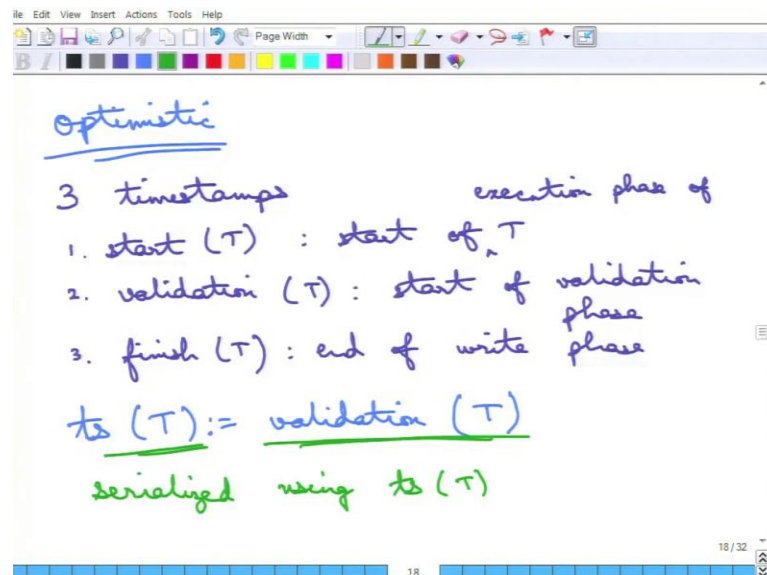 ile Edit View Insert Actions Tools Help
Page Width
B I
Optimistic
3 timestamps
execution phase of
1. start (T) : start of ‸ T
2. validation (T) : start of validation
phase
3. finish (T) : end of write phase
ts (T) := validation (T)
serialized using ts (T)
18 / 32
18